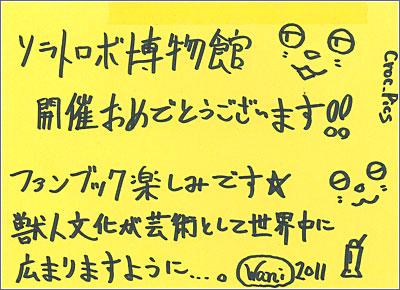 ソラトロボ博物館
開催おめでとうございます!!
Croc. Pics
ファンブック楽しみです☆
獣人文化が芸術として世界中に
広まりますように…。 Wani 2011